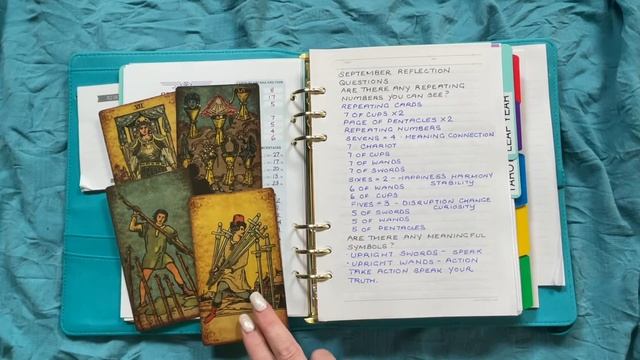 VII
SEPTEMBER REFLECTION
QUESTIONS
ARE THERE ANY REPEATING
NUMBERS YOU CAN SEE?
REPEATING CARDS
7 OF CUPS X2
PAGE OF PENTACLES X2
REPEATING NUMBERS
SEVENS = 4 - MEANING CONNECTION
7 CHARIOT
7 OF CUPS
7 OF WANDS
7 OF SWORDS
SIXES = 2 - HAPPINESS HARMONY
STABILITY
6 OF WANDS
6 OF CUPS
FIVES = 3 - DISRUPTION CHANGE
CURIOSITY
5 OF SWORDS
5 OF WANDS
5 OF PENTACLES
ARE THERE ANY MEANINGFUL
SYMBOLS?
· UPRIGHT SWORDS - SPEAK
· UPRIGHT WANDS - ACTION
TAKE ACTION SPEAK YOUR
TRUTH.
TAROT
LEAF YEAR